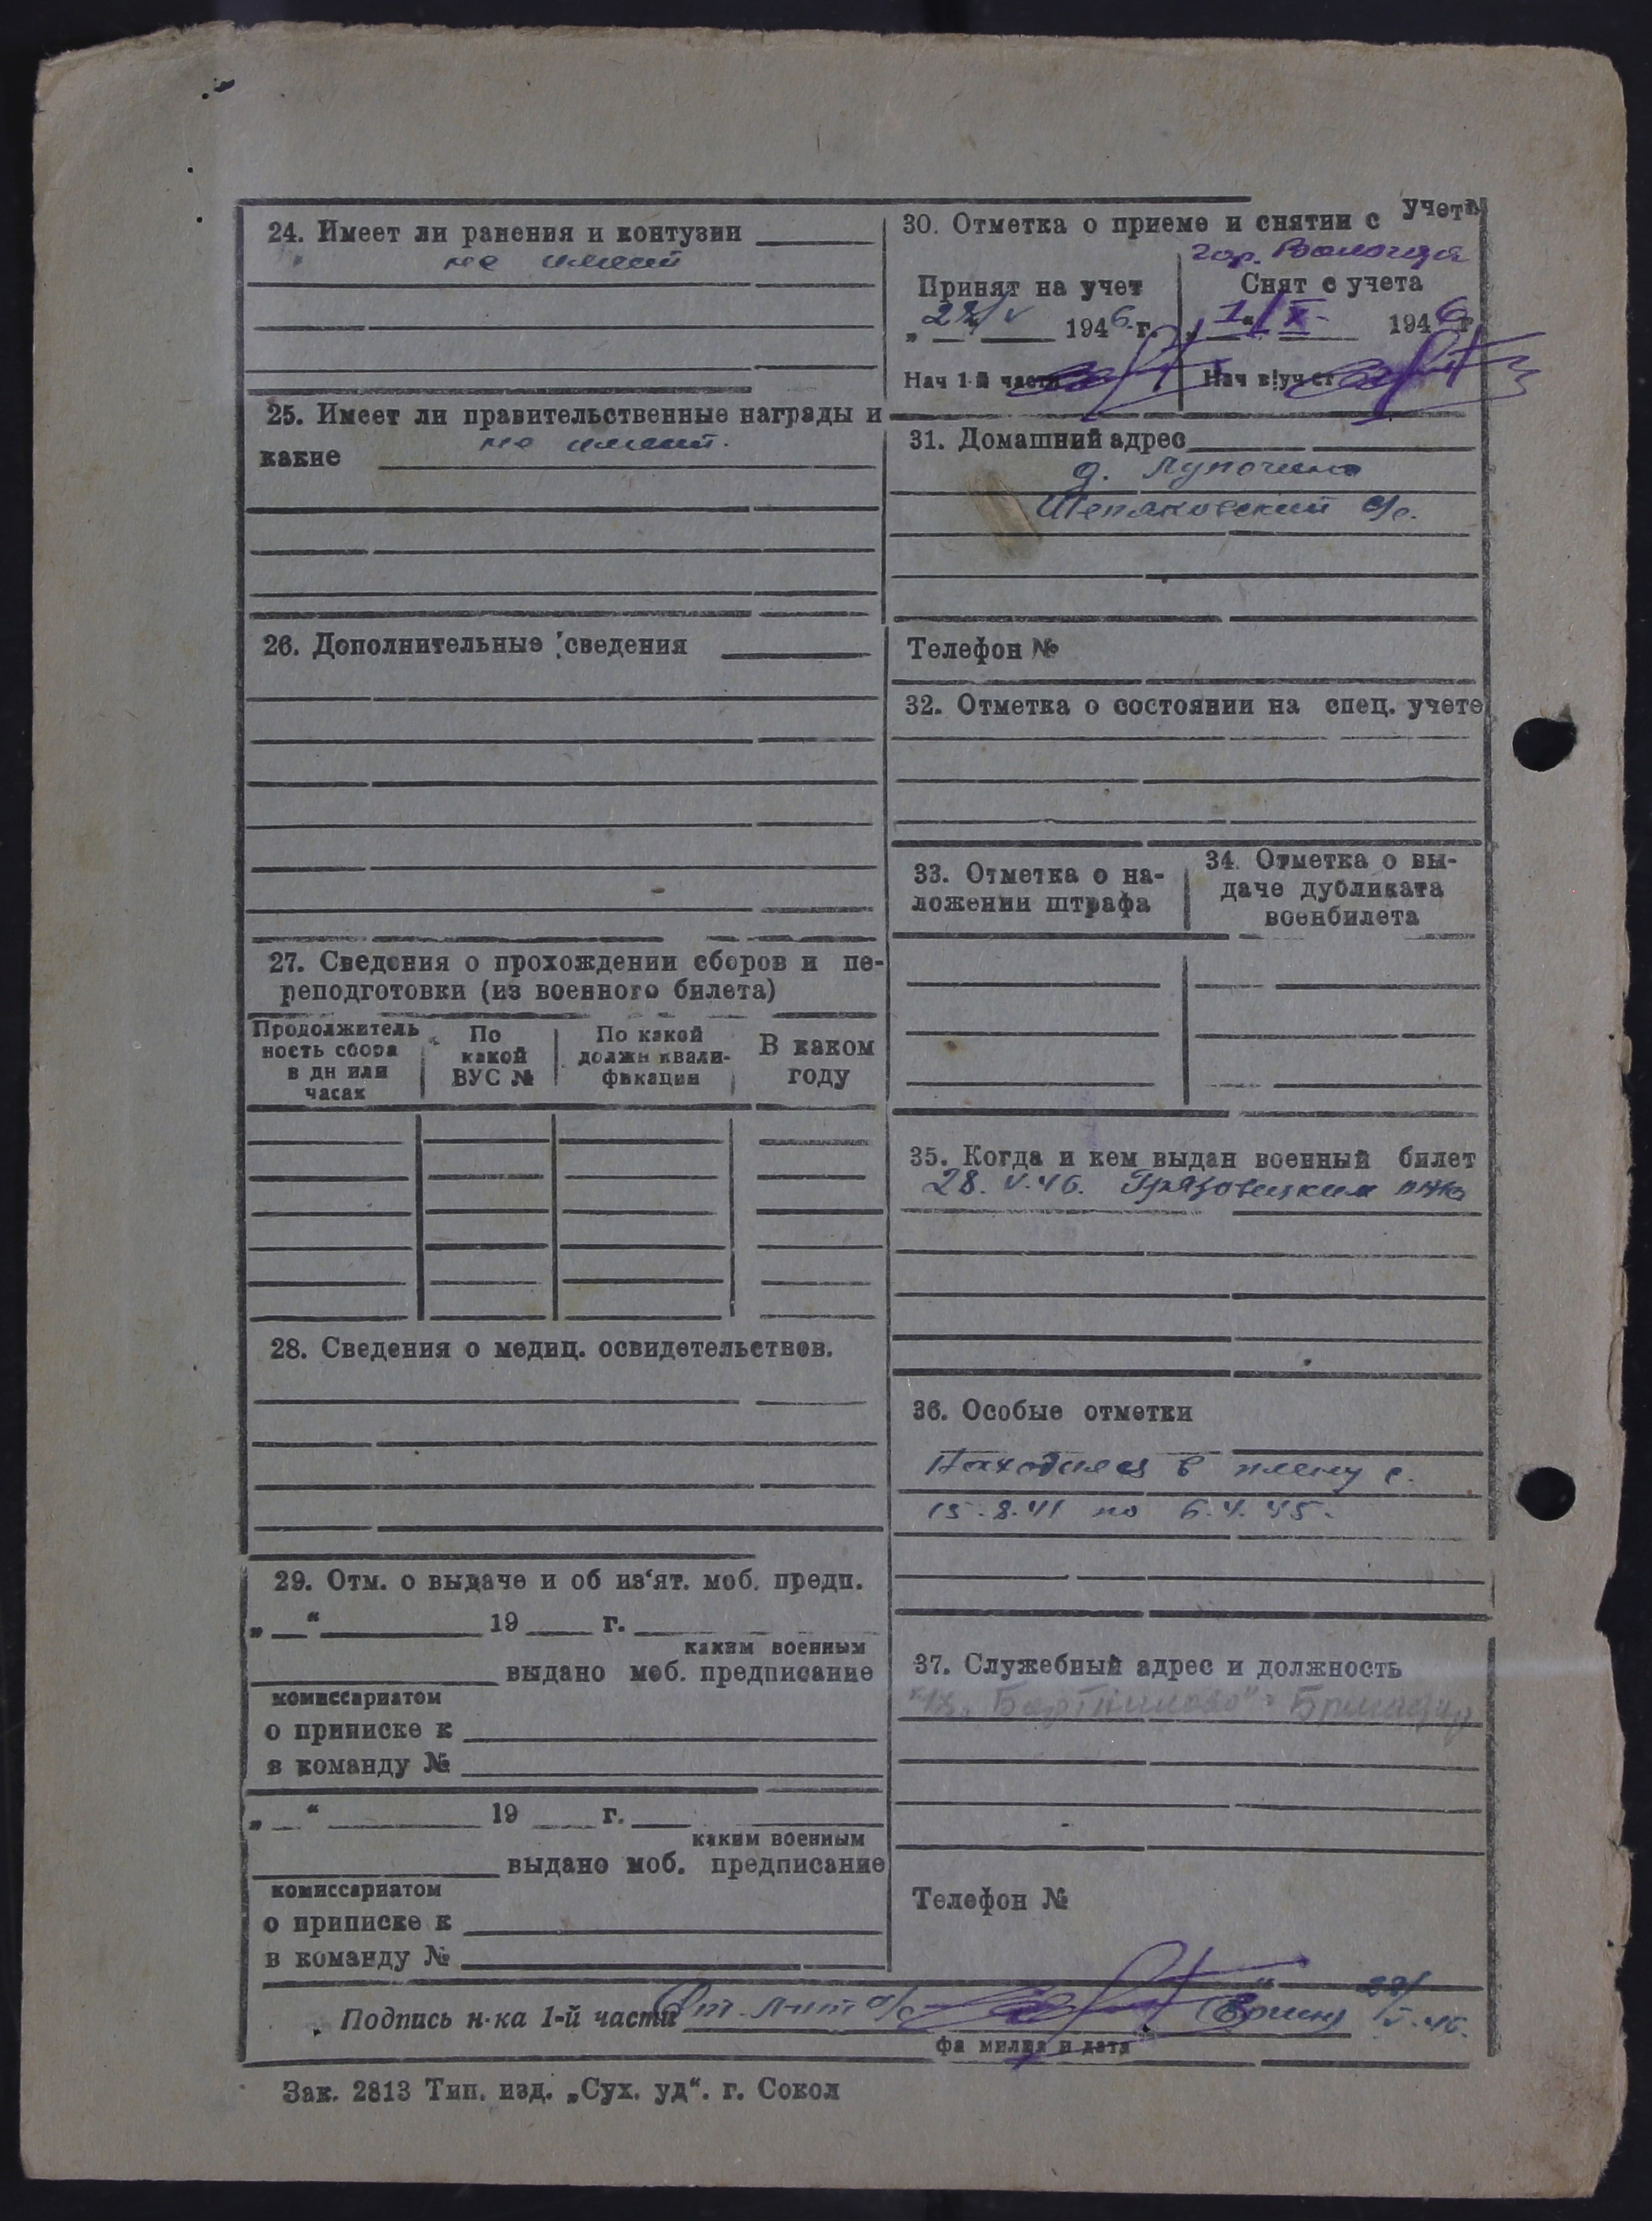 24. Имеет ли ранения и контузии
не имеет
25. Имеет ли правительственные награды и
не имеет.
какие
26. Дополнительные сведения
27. Сведения о прохождении сборов и пе-
реподготовки (из военного билета)
Продолжитель
ность сбора
в дн или
часах
По
какой
ВУС №
По какой
должн квали-
фикации
В каком
году
28. Сведения о медиц. освидетельствов.
29. Отм. о выдаче и об из‘ят. моб. предп.
„ “ 19 г.
каким военным
выдано моб. предписание
комиссариатом
о приписке к
в команду №
„ “ 19 г.
каким военным
выдано моб. предписание
комиссариатом
о приписке к
в команду №
30. Отметка о приеме и снятии с учета
гор. Вологда
Принят на учет
„28/V 1946 г.
Нач 1-й части
Снят с учета
„1“/X- 1946 г
Нач в|уч ст
31. Домашний адрес
д. Лупочино
Шепяковский с/с.
Телефон №
32. Отметка о состоянии на спец. учете
33. Отметка о на-
ложении штрафа
34. Отметка о вы-
даче дубликата
военбилета
35. Когда и кем выдан военный билет
28. V. 46. Грязовецким РВК
36. Особые отметки
Находился в плену с.
15.8.41 по 6.4.45.
37. Служебный адрес и должность
Бригадир
Телефон №
Подпись н-ка 1-й части Ст. л-нт а/с 28/V-46.
фамилия и дата
Зак. 2813 Тип. изд. „Сух. уд“. г. Сокол